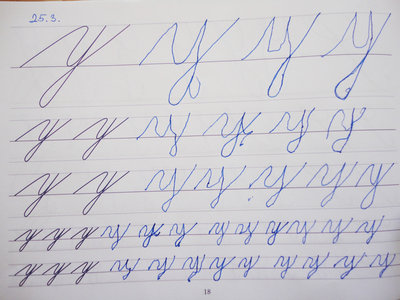 25.3.
y y y y
y y y y y y
y y y y y y y
y y y y y y y y y y y y
y y y y y y y y y y y y
18